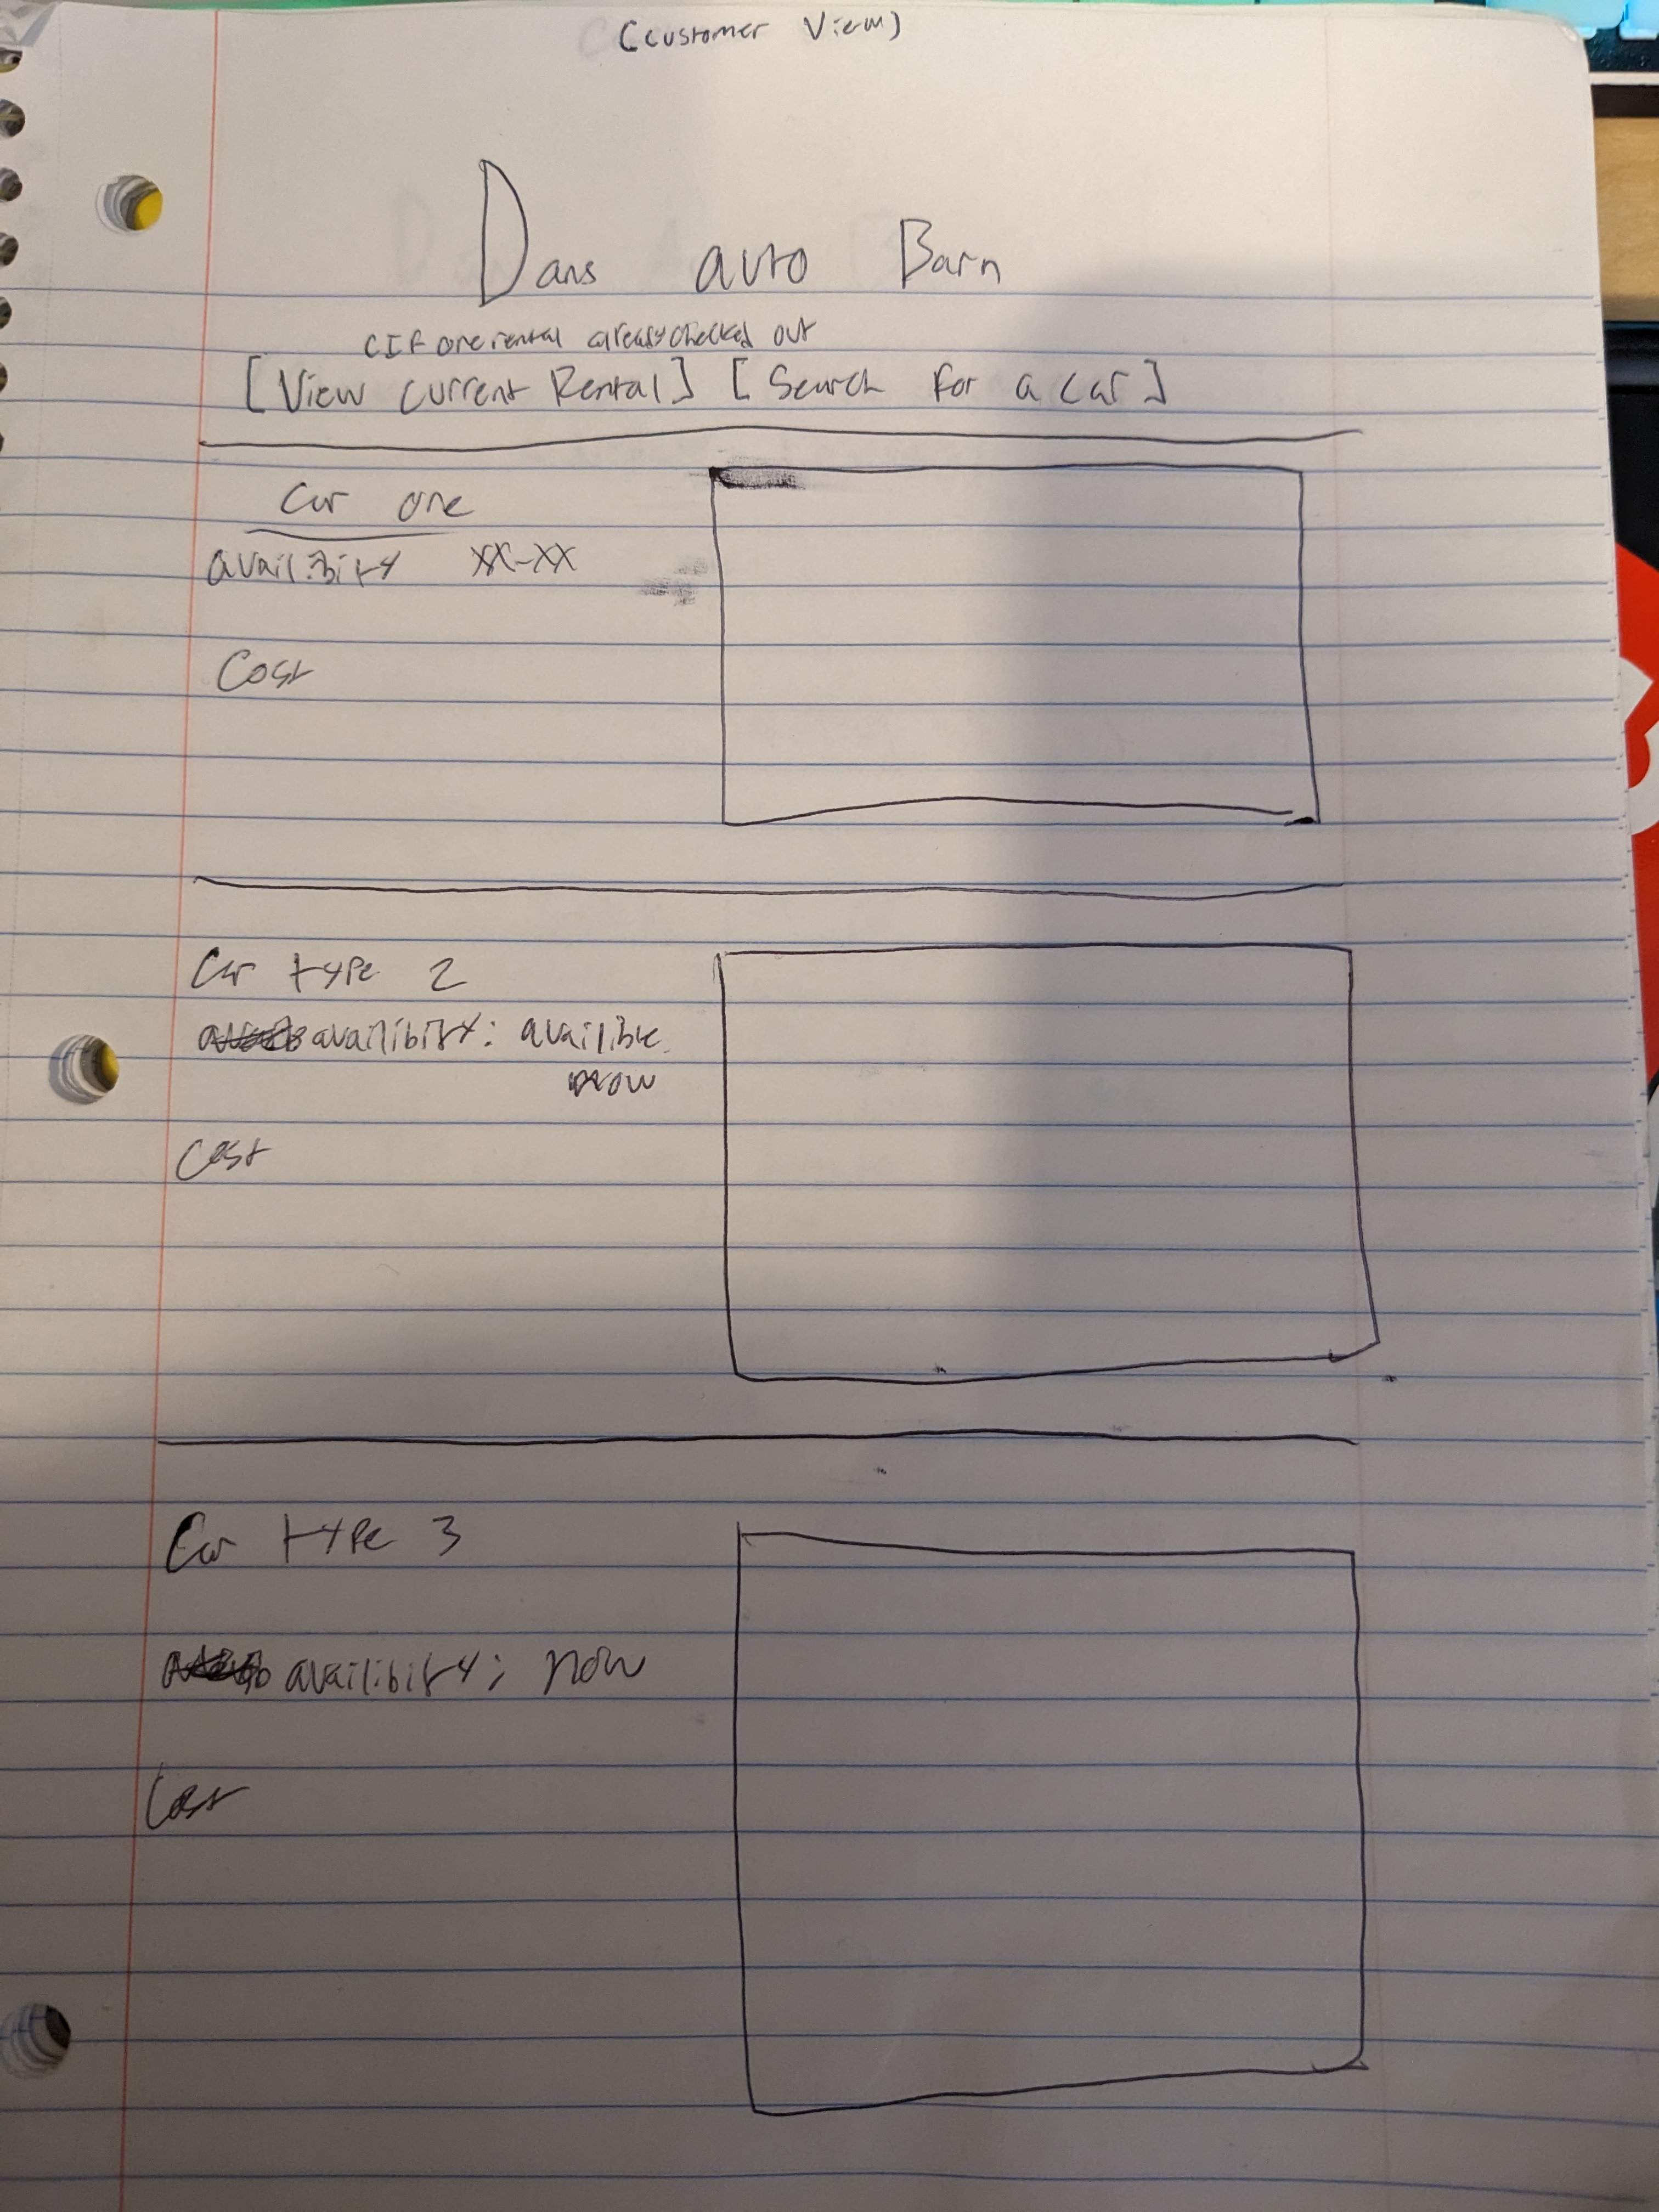 (customer View)
Dans auto Barn
(If one rental already checked out
[View current Rental] [Search for a car]
Car one
availibity XX-XX
Cost
Car type 2
availibity: availible
now
Cost
Car type 3
availibity: now
Cost